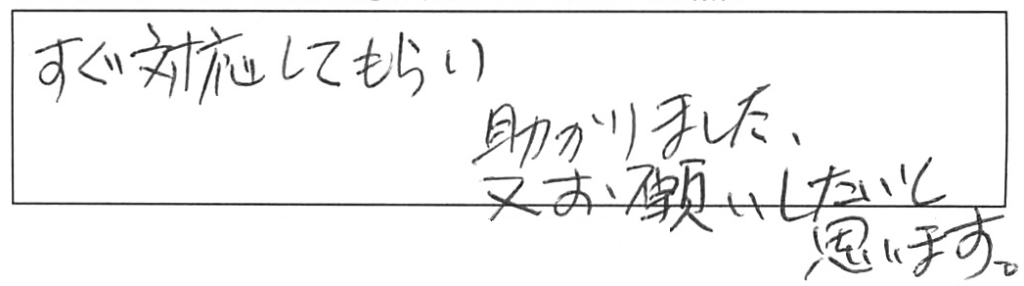 すぐ対応してもらい
助かりました、
又お願いしたいと
思います。